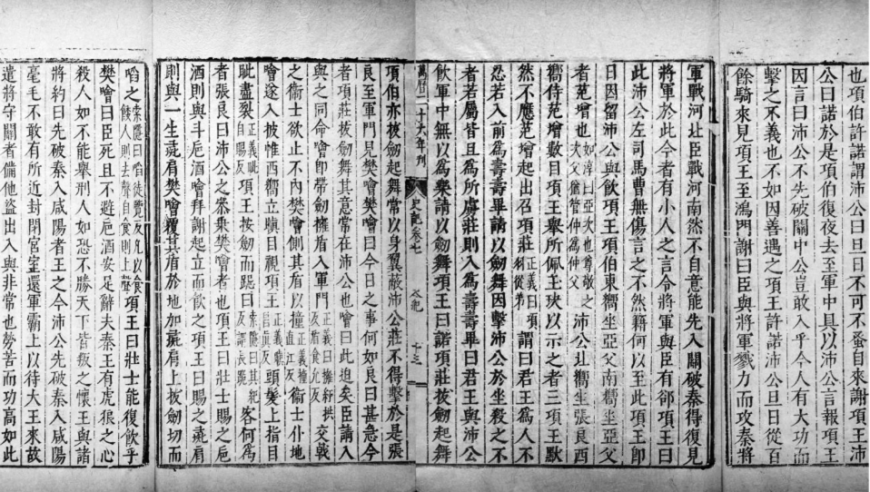 也項伯許諾謂沛公曰旦日不可不蚤自來謝項王沛
公曰諾於是項伯復夜去至軍中具以沛公言報項王
因言曰沛公不先破關中公豈敢入乎今人有大功而
擊之不義也不如因善遇之項王許諾沛公旦日從百
餘騎來見項王至鴻門謝曰臣與將軍戮力而攻秦將
軍戰河北臣戰河南然不自意能先入關破秦得復見
將軍於此今者有小人之言令將軍與臣有郤項王曰
此沛公左司馬曹無傷言之不然籍何以至此項王即
日因留沛公與飲項王項伯東嚮坐亞父南嚮坐亞父
者范增也如淳曰亞次也尊敬之次父猶管仲爲仲父沛公北嚮坐張良西
嚮侍范增數目項王舉所佩玉玦以示之者三項王默
然不應范增起出召項莊正義曰項羽從弟謂曰君王爲人不
忍若入前爲壽壽畢請以劒舞因擊沛公於坐殺之不
者若屬皆且爲所虜莊則入爲壽壽畢曰君王與沛公
飲軍中無以爲樂請以劒舞項王曰諾項莊拔劒起舞
萬曆二十六年刊 史記卷七 本紀 十三
項伯亦拔劒起舞常以身翼蔽沛公莊不得擊於是張
良至軍門見樊噲樊噲曰今日之事何如良曰甚急今
者項莊拔劒舞其意常在沛公也噲曰此迫矣臣請入
與之同命噲即帶劒擁盾入軍門交戟
之衞士欲止不內樊噲側其盾以撞衞士仆地
噲遂入披帷西嚮立瞋目視項王頭髮上指目
眦盡裂正義眦自賜反項王按劒而跽曰客何爲
者張良曰沛公之參乘樊噲者也項王曰壯士賜之卮
酒則與斗卮酒噲拜謝起立而飲之項王曰賜之彘肩
則與一生彘肩樊噲覆其盾於地加彘肩上拔劒切而
啗之項王曰壯士能復飲乎
樊噲曰臣死且不避卮酒安足辭夫秦王有虎狼之心
殺人如不能舉刑人如恐不勝天下皆叛之懷王與諸
將約曰先破秦入咸陽者王之今沛公先破秦入咸陽
毫毛不敢有所近封閉宮室還軍霸上以待大王來故
遣將守關者備他盜出入與非常也勞苦而功高如此